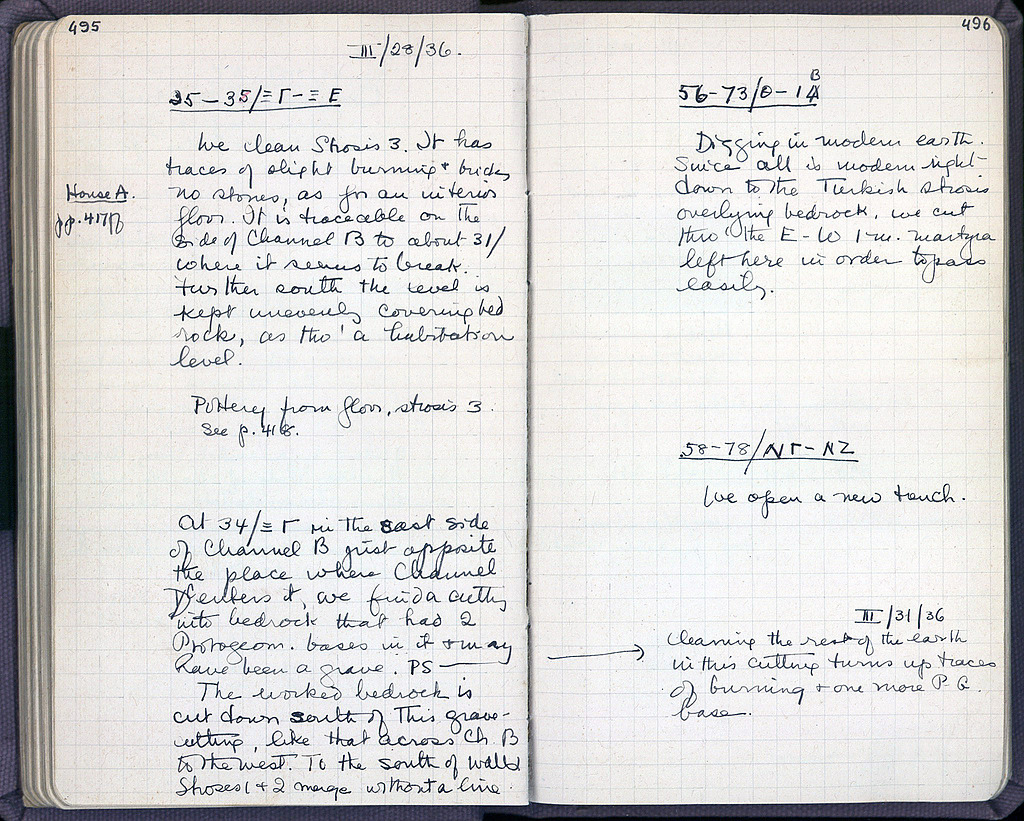 495
III/28/36.
25-35/ΞΓ-ΞE
We clean Strosis 3. It has
traces of slight burning + bricks
no stones, as for an interior
floor. It is traceable on the
side of Channel B to about 31/
where it seems to break.
Further south the level is
kept unevenly covering bed
rock, as tho' a habitation
level.
House A.
pp. 417
Pottery from floor, strosis 3.
See p. 418.
At 34/ΞΓ in the east side
of Channel B just opposite
the place where Channel
enters it, we find a cutting
into bedrock that had 2
Protogeom. bases in it + may
have been a grave. PS
The worked bedrock is
cut down south of this grave-
cutting, like that across Ch. B
to the west. To the south of wall
Stroses 1 + 2 merge without a line.
496
56-73/Θ-1B
Digging in modern earth.
Since all is modern right
down to the Turkish strosis
overlying bedrock, we cut
thro' the E-W 1 m. martyra
left here in order to pass
easily.
58-78/NΓ-NZ
We open a new trench.
III/31/36
Cleaning the rest of the earth
in this cutting turns up traces
of burning + one more P-G.
base.